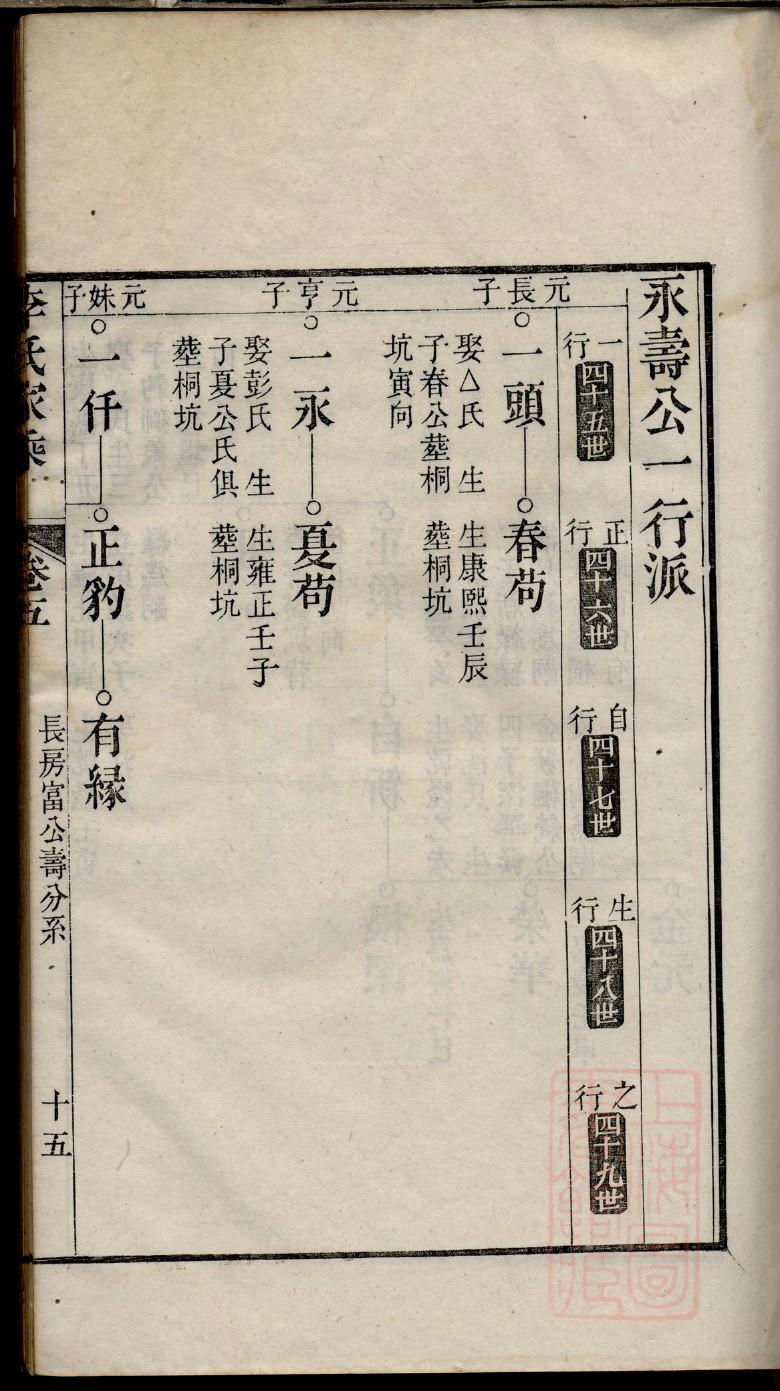 永壽公一行派
一行 四十五世
正行 四十六世
自行 四十七世
生行 四十八世
之行 四十九世
元長子
一頭 春苟
娶△氏 生
子春公塟桐
坑寅向
生康熙壬辰
塟桐坑
元亨子
一永 夏苟
娶彭氏 生
子夏公氏俱
塟桐坑
生雍正壬子
塟桐坑
元妹子
一仟 正豹 有縁
李氏家乘 卷五
長房富公壽分系
十五